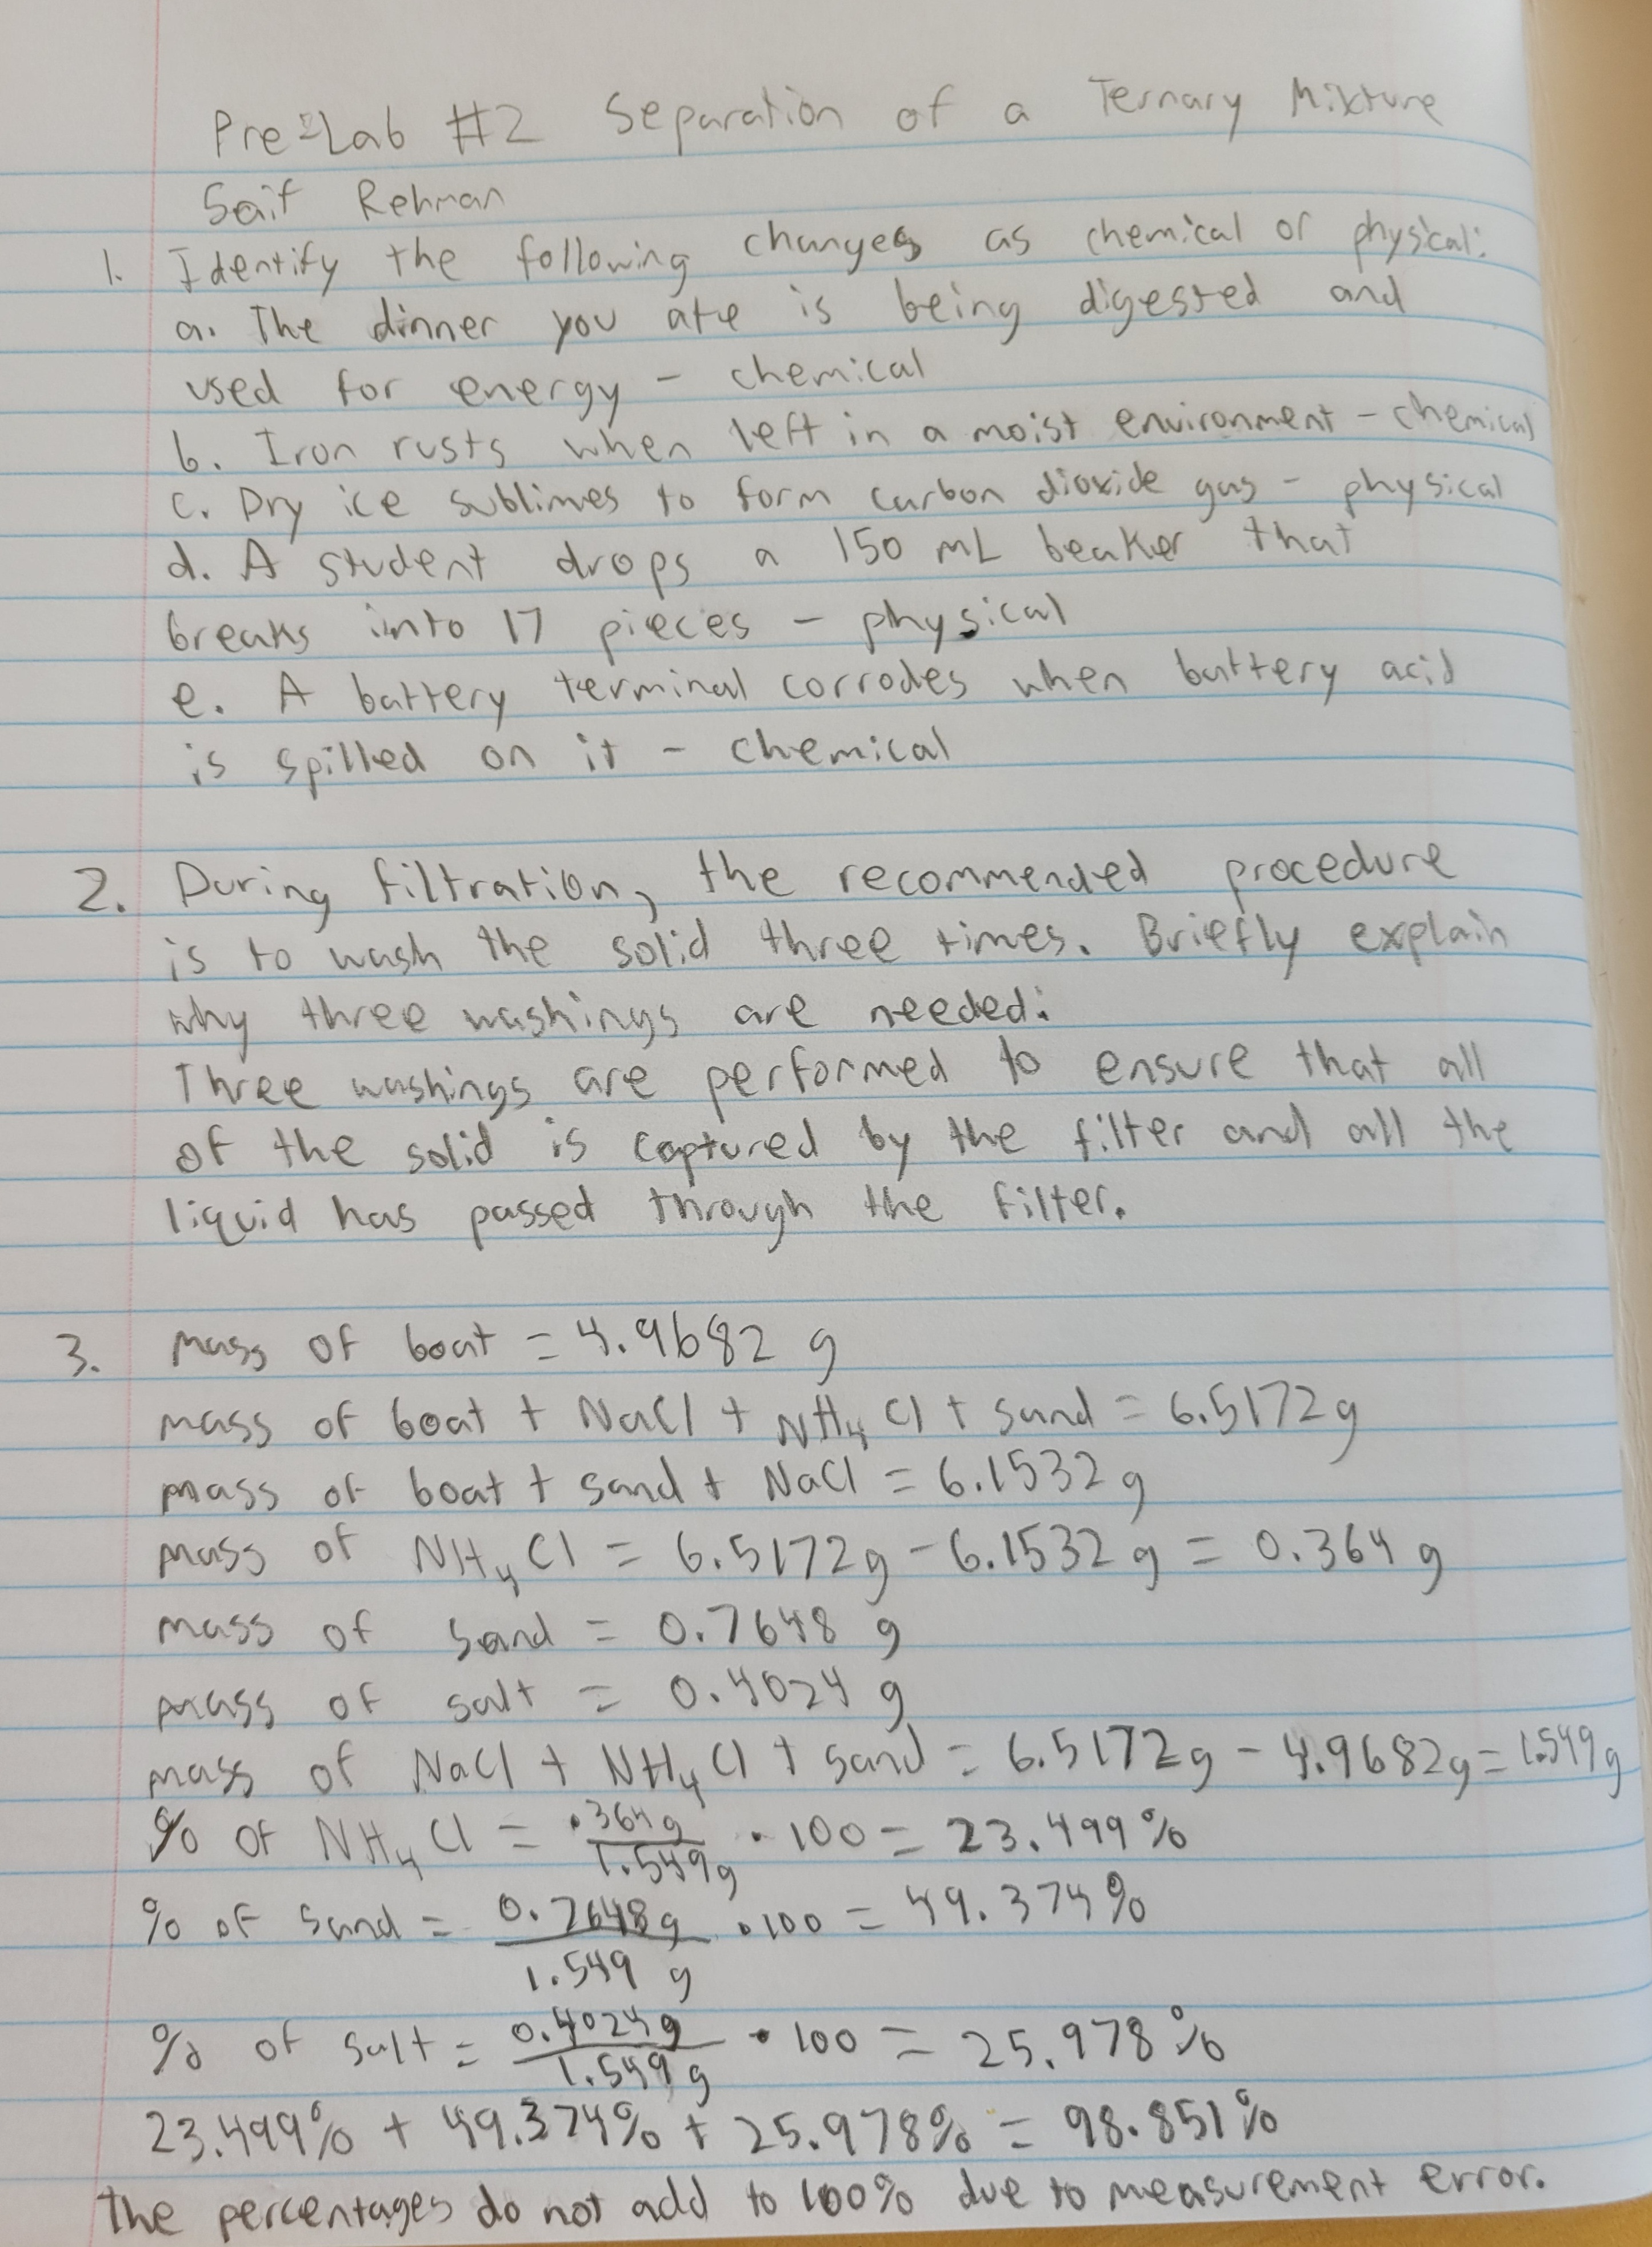 Pre-Lab #2 Separation of a Ternary Mixture
Saif Rehman
1. Identify the following changes as chemical or physical:
a. The dinner you ate is being digested and
used for energy - chemical
b. Iron rusts when left in a moist environment - chemical
c. Dry ice sublimes to form carbon dioxide gas - physical
d. A student drops a 150 mL beaker that
breaks into 17 pieces - physical
e. A battery terminal corrodes when battery acid
is spilled on it - chemical
2. During filtration, the recommended procedure
is to wash the solid three times. Briefly explain
why three washings are needed:
Three washings are performed to ensure that all
of the solid is captured by the filter and all the
liquid has passed through the filter.
3. Mass of boat = 4.9682 g
mass of boat + NaCl + NH₄Cl + sand = 6.5172g
mass of boat + sand + NaCl = 6.1532g
mass of NH₄Cl = 6.5172g - 6.1532g = 0.364 g
mass of sand = 0.7648 g
mass of salt = 0.4024 g
mass of NaCl + NH₄Cl + sand = 6.5172g - 4.9682g = 1.549g
% of NH₄Cl = .364g / 1.549g · 100 = 23.499%
% of sand = 0.7648g / 1.549 g · 100 = 49.374%
% of salt = 0.4024g / 1.549g · 100 = 25.978%
23.499% + 49.374% + 25.978% = 98.851%
The percentages do not add to 100% due to measurement error.